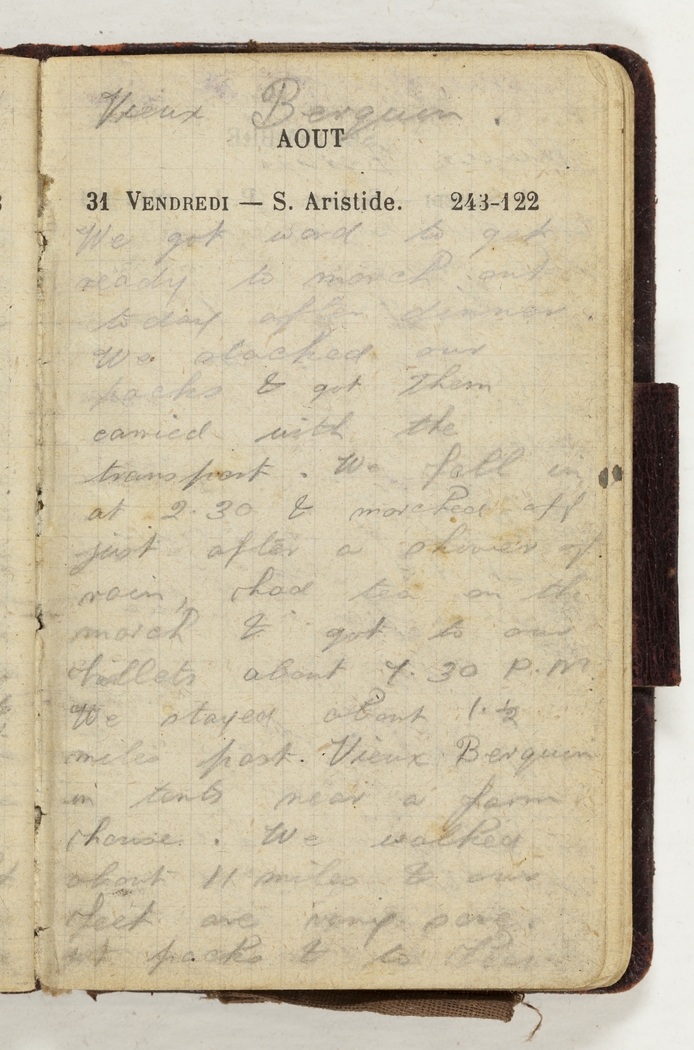 Vieux Berquin.
AOUT
31 VENDREDI — S. Aristide. 243-122
We got word to get
ready to march out
today after dinner.
We stacked our
packs & got them
carried with the
transport. We fell in
at 2.30 & marched off
just after a shower of
rain, had tea on the
march & got to our
billets about 7.30 P.M
We stayed about 1.½
miles past Vieux Berquin
in tents near a farm
house. We walked
about 11 miles & our
feet are very sore.
packs & to